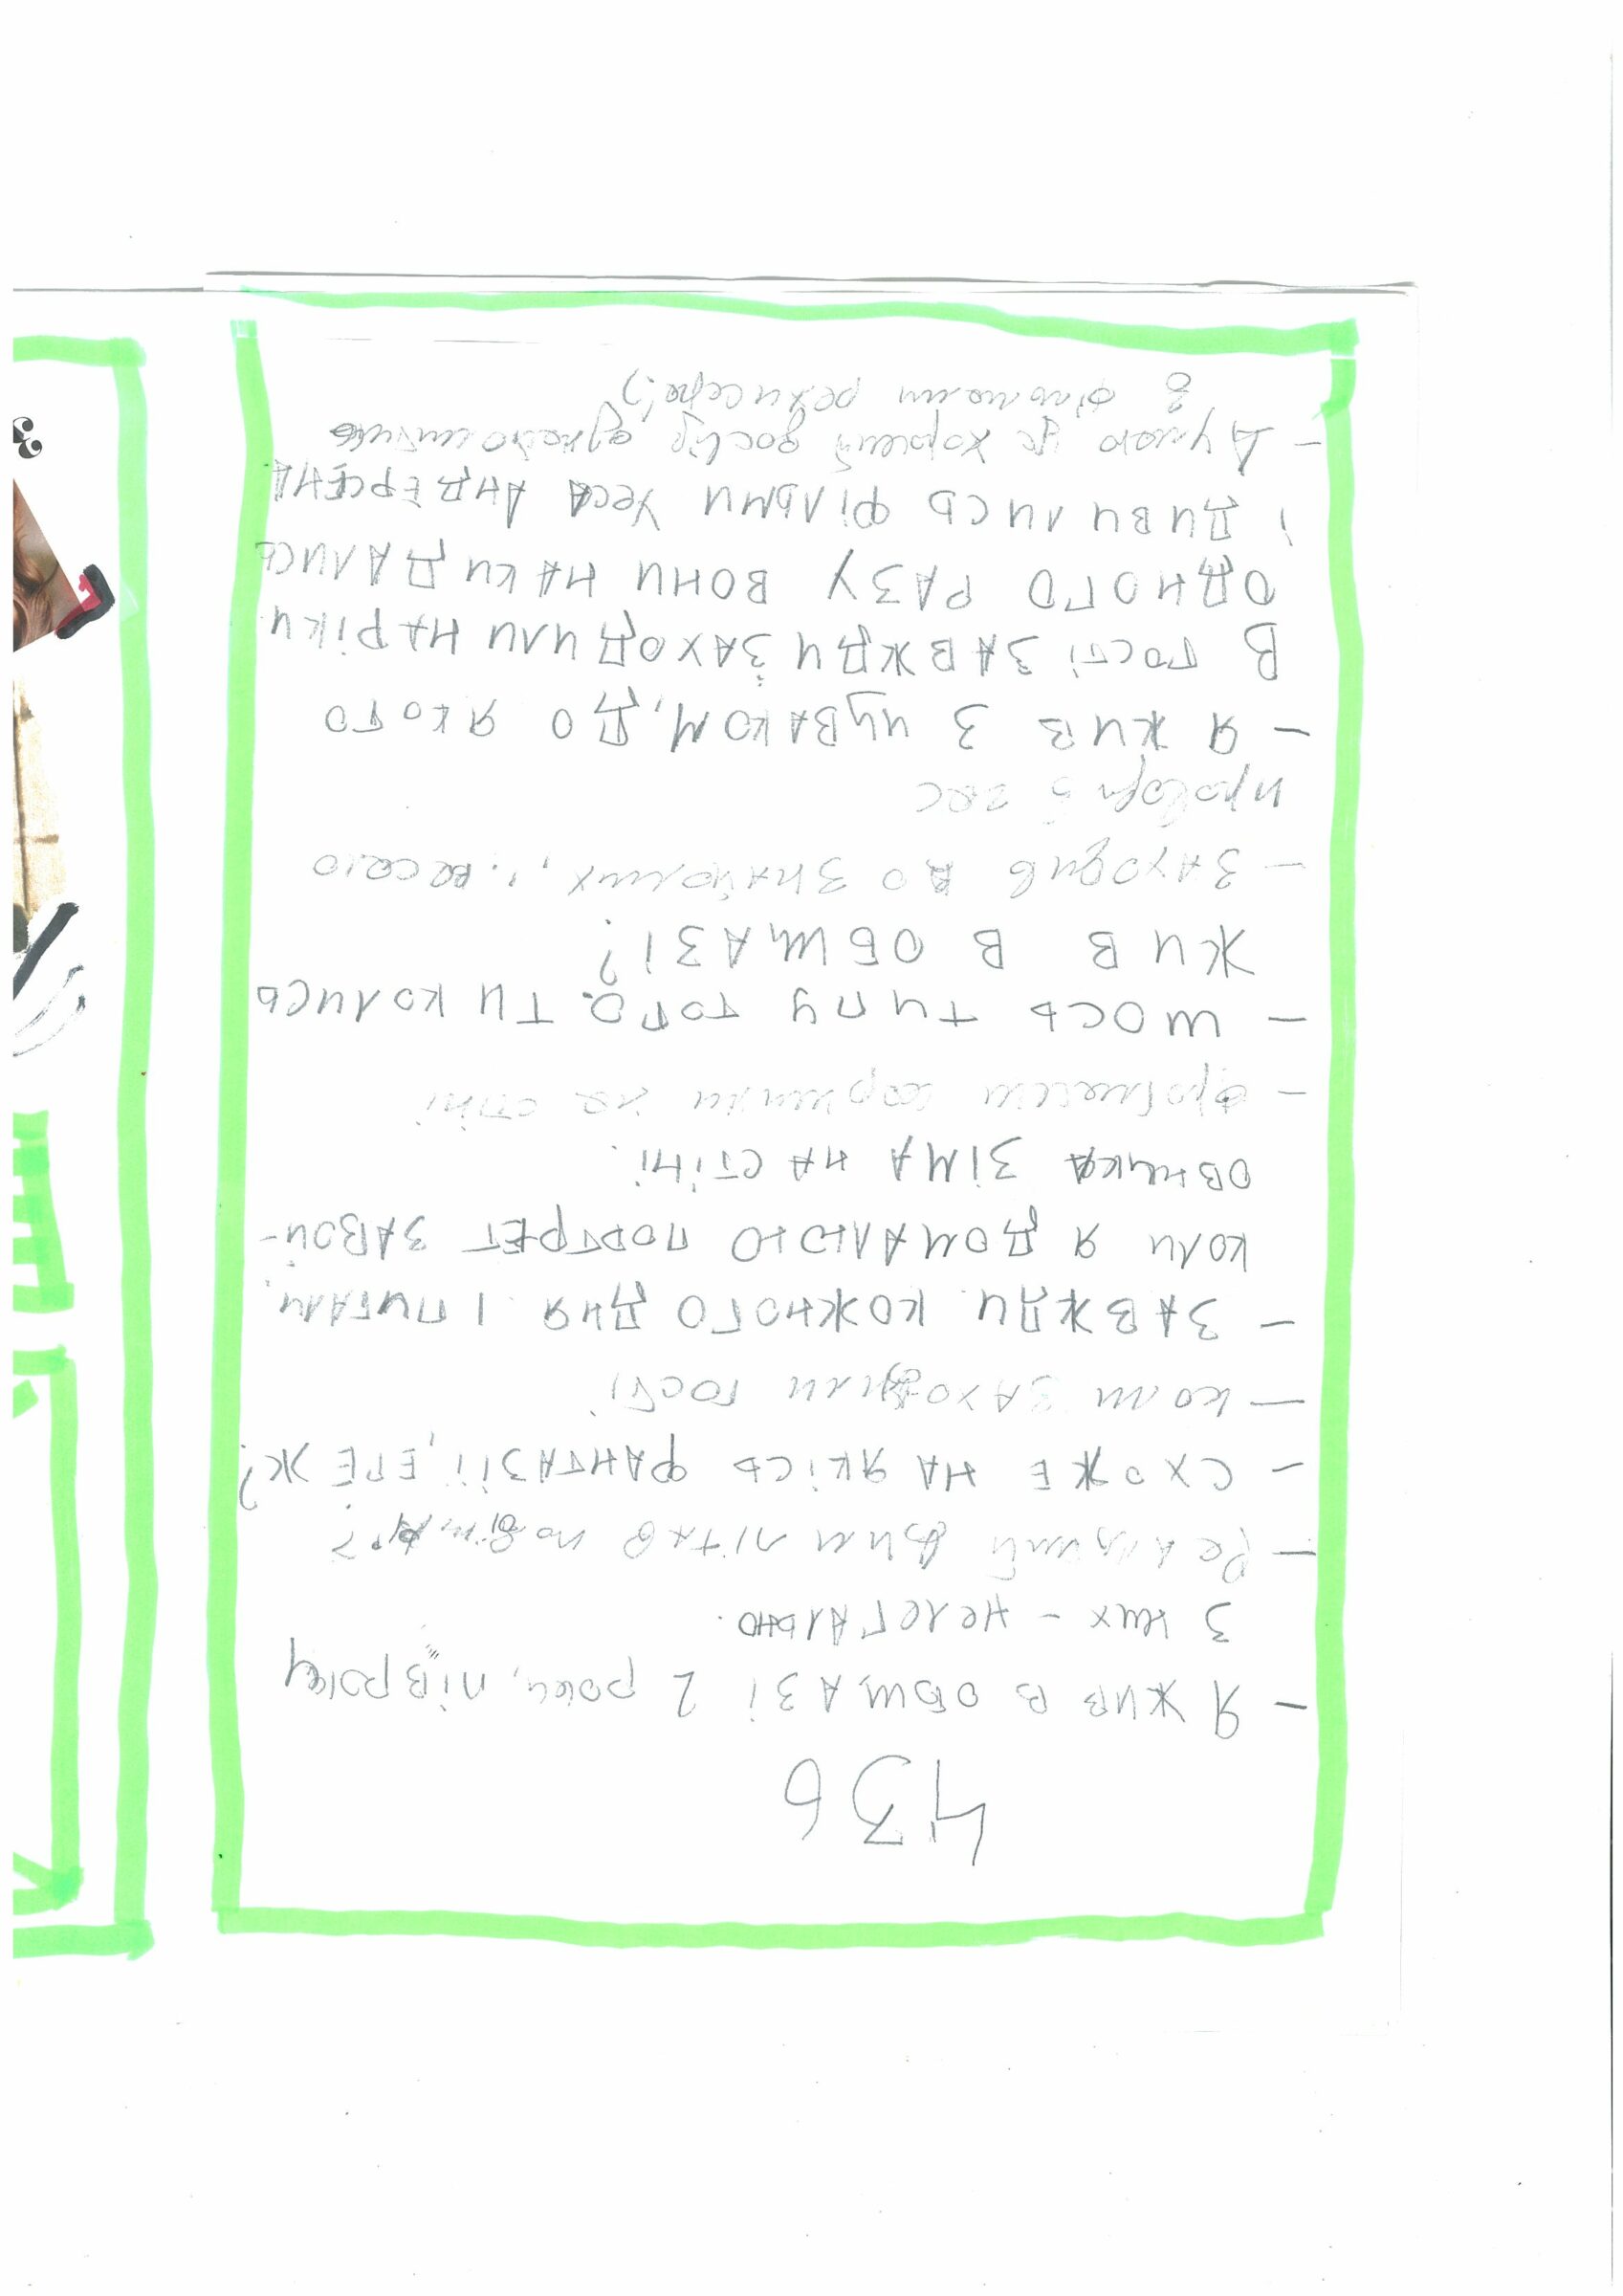 436
- Я жив в общазі 2 роки, півроку
з них - нелегально.
- Реальний дим літав повітр?
- СХОЖЕ НА ЯКІСЬ ФАНТАЗІЇ, ЕГЕ Ж?
- коли заходили гості
- ЗАВЖДИ. КОЖНОГО ДНЯ. І ПИТАЛИ,
КОЛИ Я ДОМАЛЮЮ ПОРТРЕТ ЗАВОЙ-
ОВНИКА ЗІМА НА СТІНІ.
- на стіні
- ШОСЬ ТИПУ ТОГО. ТИ КОЛИСЬ
ЖИВ В ОБЩАЗІ?
- Заходив до знайомих, весело
час
- Я ЖИВ З ЧУВАКОМ, ДО ЯКОГО
В ГОСТІ ЗАВЖДИ ЗАХОДИЛИ НАРІКИ.
ОДНОГО РАЗУ ВОНИ НАКИДАЛИСЬ
І ДИВИЛИСЬ ФІЛЬМИ УЕСА АНДЕРСЕНА
- Думаю це хороший досвід, ознайомитись
з фільмами режисера:)
&